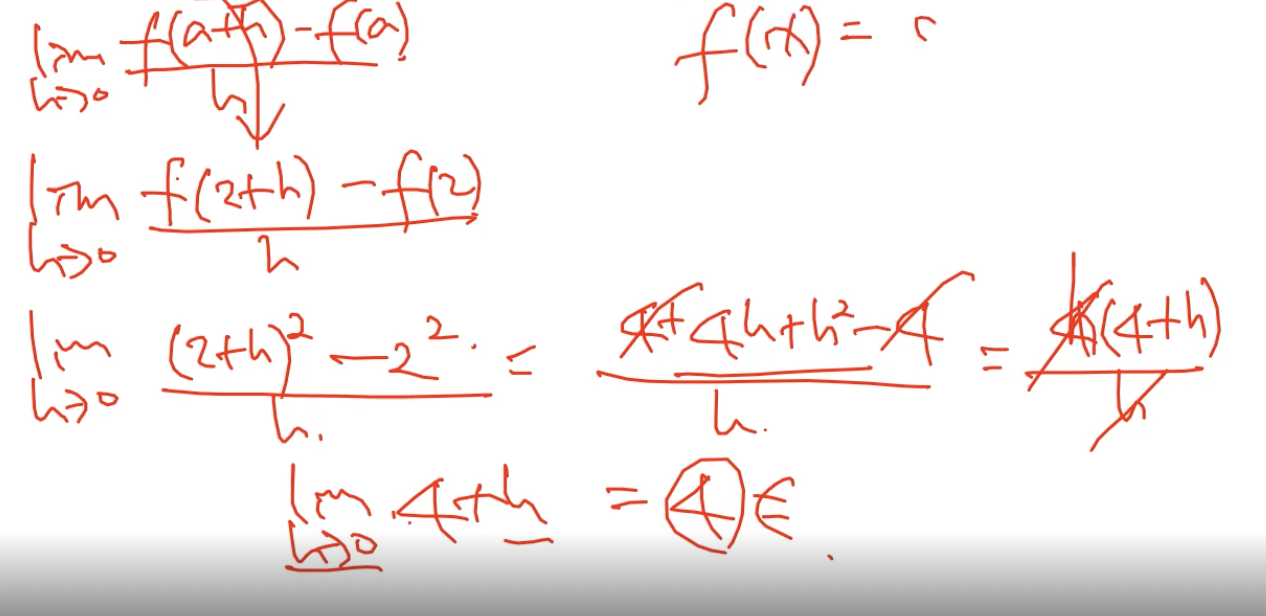 lim h→0 f(a+h) - f(a) / h
f(x) =
lim h→0 f(2+h) - f(2) / h
lim h→0 (2+h)² - 2² / h. = 4+4h+h²-4 / h. = h(4+h) / h
lim h→0 4+h = 4